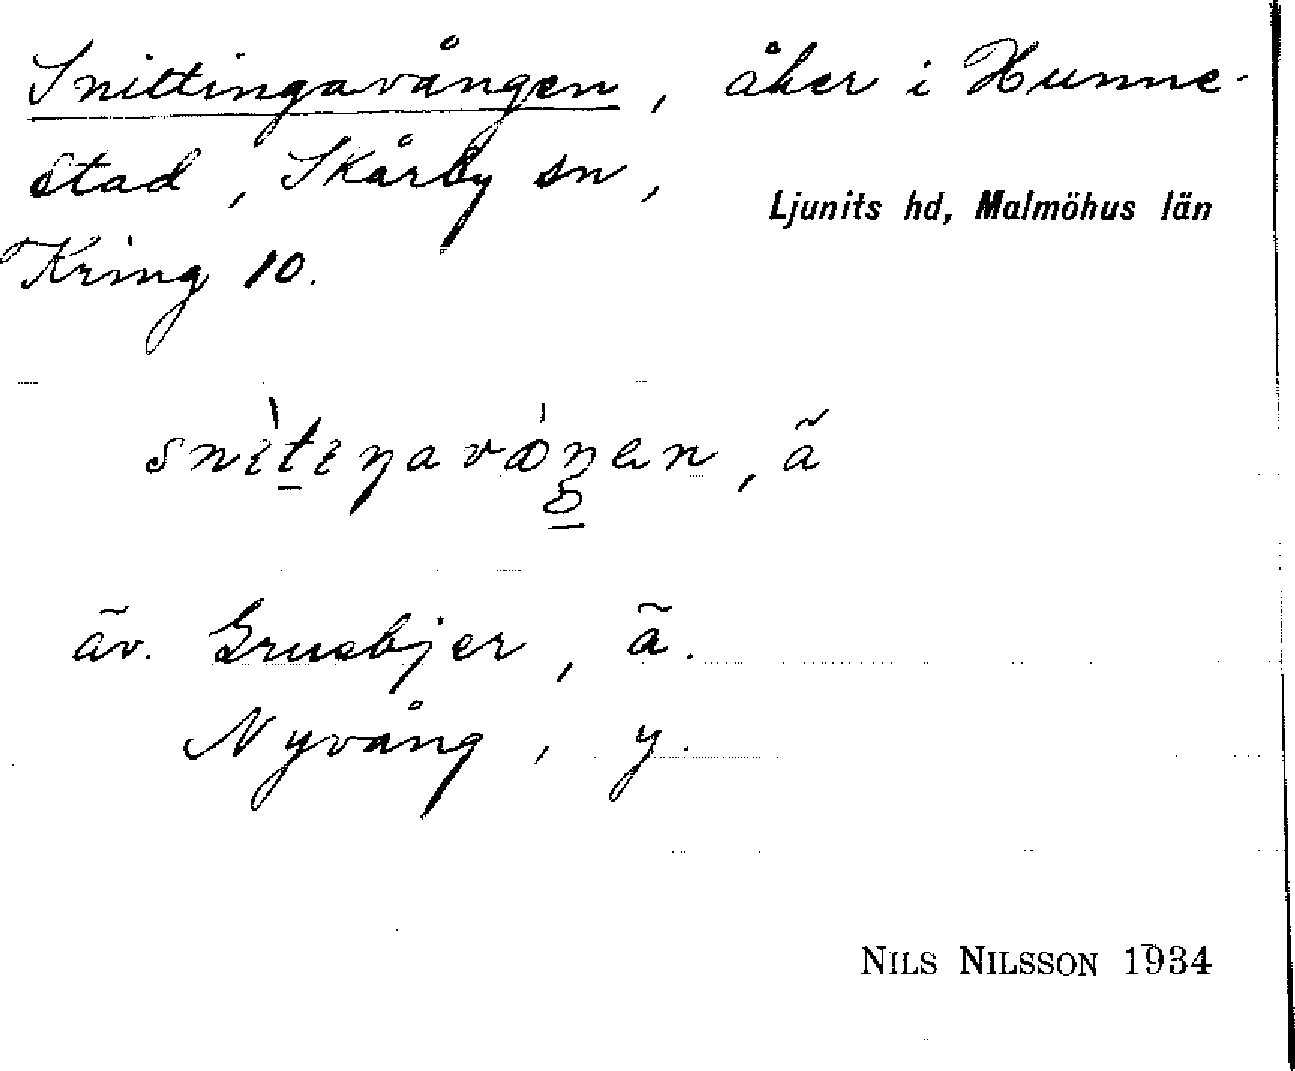 Snittingavången, åker i Hunne-
stad, Skårby sn,
Ljunits hd, Malmöhus län
Kring 10.
äv. Grusbjer, ã.
Nyvång, y.
NILS NILSSON 1934